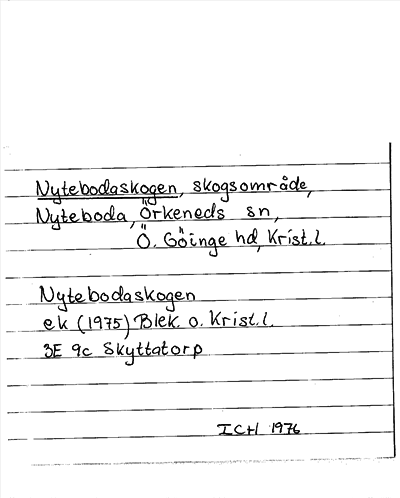 Nytebodaskogen, skogsområde,
Nyteboda, Örkeneds sn,
Ö. Göinge hd, Krist.l.
Nytebodaskogen
ek (1975) Blek. o. Krist.l.
3E 9c Skyttatorp
ICH 1976